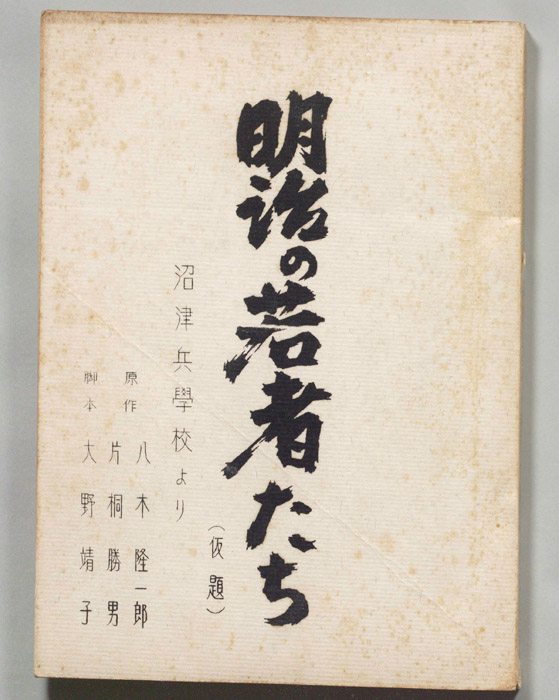 明治の若者たち
（仮題）
沼津兵學校より
原作 八木隆一郎
片桐勝男
脚本 大野靖子